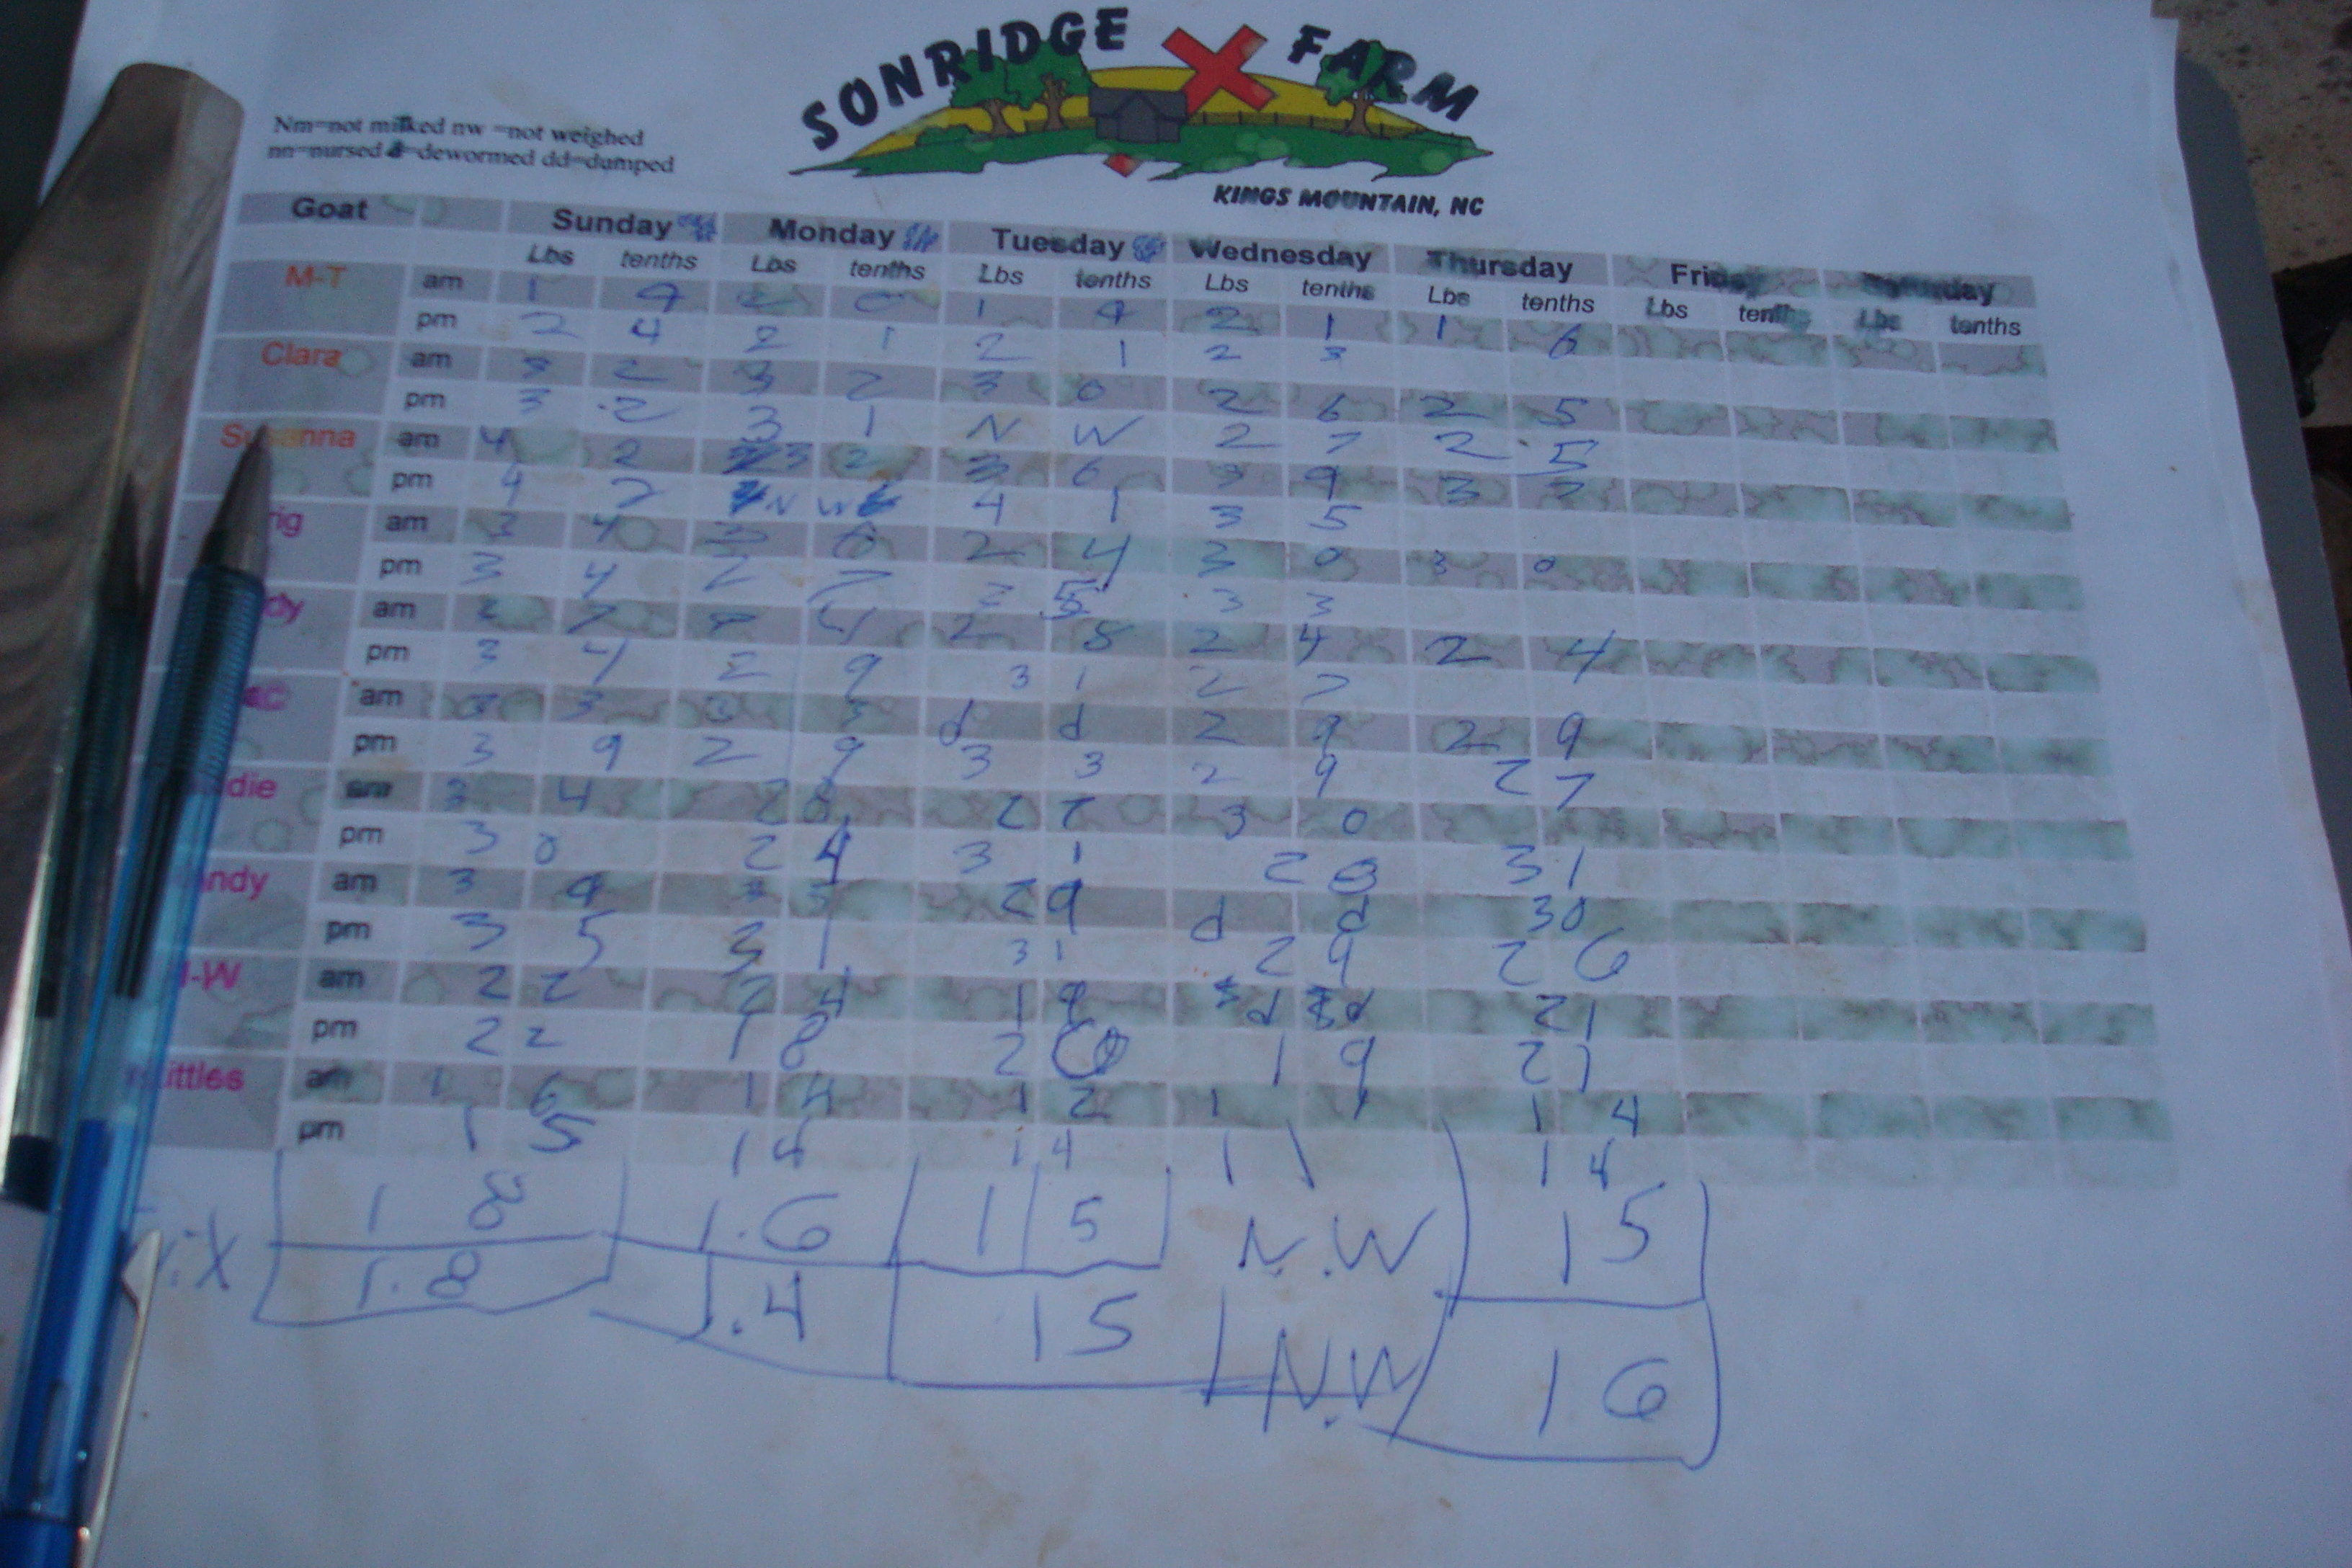 SONRIDGE FARM
KINGS MOUNTAIN, NC
Nm=not milked nw =not weighed
nn=nursed d=dewormed dd=dumped
Goat Sunday Monday Tuesday Wednesday Thursday Friday Saturday
Lbs tenths Lbs tenths Lbs tenths Lbs tenths Lbs tenths Lbs tenths Lbs tenths
M-T am 1 9 2 0 1 9 2 1 1 6
pm 2 4 2 1 2 1 2 3
Clara am 3 2 3 2 3 0 2 6 2 5
pm 3 .2 3 1 N W 2 7 2 . 5
Susanna am 4 2 3 2 3 6 3 9 3 7
pm 4 2 N W 4 1 3 5
rig am 3 4 3 6 2 4 3 0 3 0
pm 3 4 2 7 2 5 3 3
dy am 2 7 2 5 2 4 2 4
pm 3 4 2 9 3 1 2 7
am 3 3 3 3 d d 2 9 2 9
pm 3 9 2 9 3 3 2 9 2 7
die am 3 4 2 8 2 7 3 0
pm 3 0 2 4 3 1 2 8 3 1
ndy am 3 9 2 9 d d 3 0
pm 3 5 3 1 3 1 2 9 2 6
-W am 2 2 2 4 1 9 d d 2 1
pm 2 2 1 8 2 0 1 9 2 1
ittles am 1 6 1 4 1 2 1 1 1 4
pm 1 5 1 4 1 4 1 1 1 4
1 8 1.6 1 5 N.W 1 5
1.8 1.4 1 5 N.W 1 6